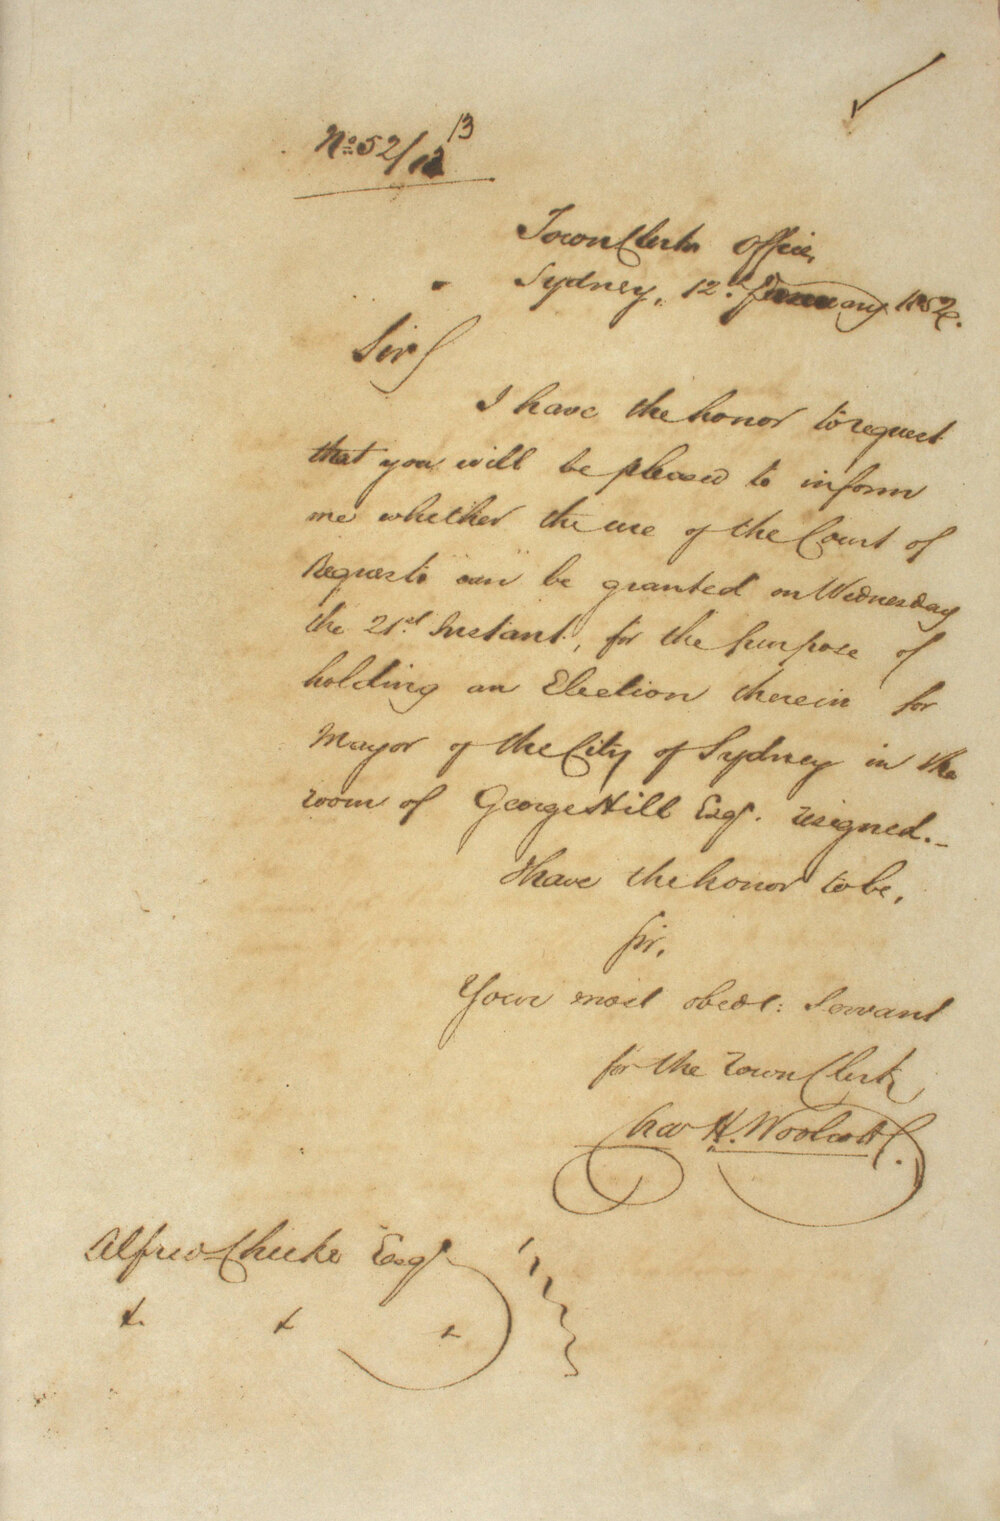 No. 52/13
Town Clerks Office,
Sydney, 12th January 1852.
Sir
I have the honor to request
that you will be pleased to inform
me whether the use of the Court of
Requests can be granted on Wednesday
the 21st Instant, for the purpose of
holding an Election therein for
Mayor of the City of Sydney in the
room of George Hill Esqr. resigned.–
I have the honor to be,
Sir,
Your most obedt: Servant
for the Town Clerk
Chas H. Woolcott
Alfred Cheeke Esqr